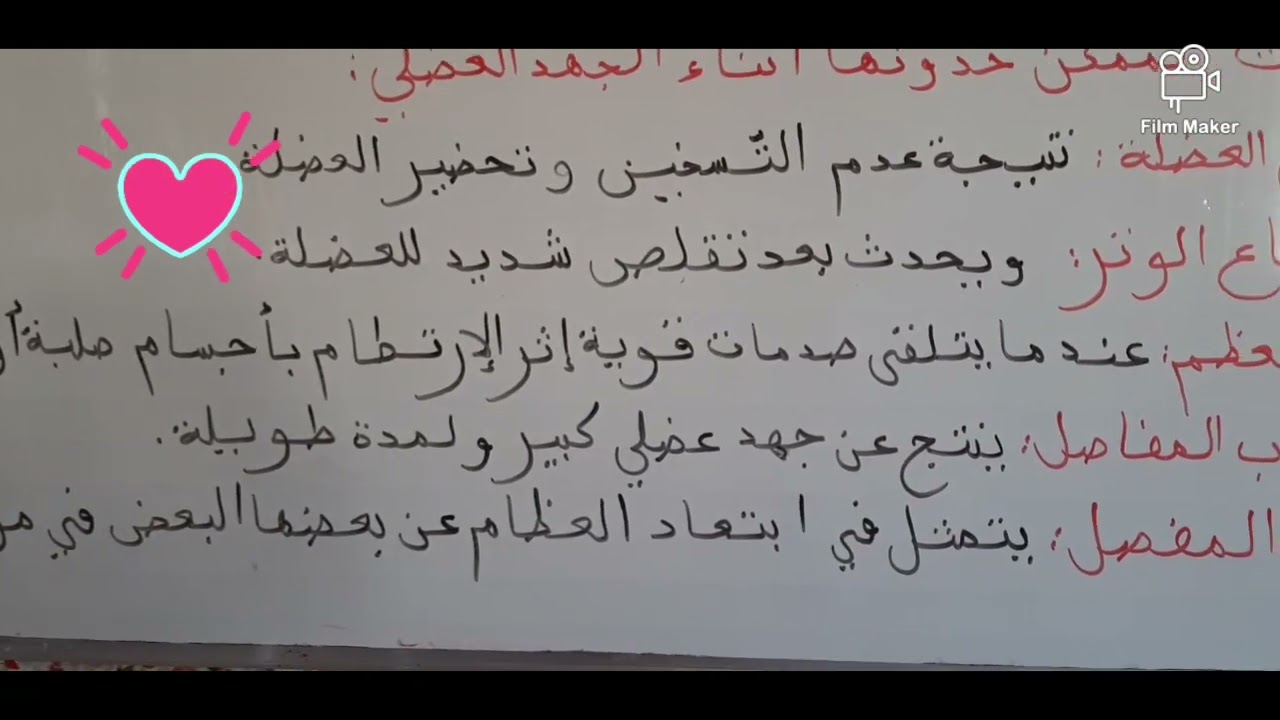 ممكن حدوثها أثناء الجهد العضلي:
العضلة: نتيجة عدم التّسخين وتحضير العضلة
الوتر: ويحدث بعد تقلص شديد للعضلة.
عندما يتلقى صدمات قوية إثر الإرتطام بأجسام صلبة أو
المفاصل: ينتج عن جهد عضلي كبير ولمدة طويلة.
المفصل: يتمثل في ابتعاد العظام عن بعضها البعض في
Film Maker